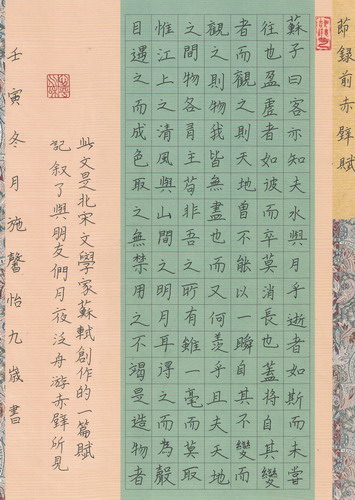 節錄前赤壁賦
蘇子曰客亦知夫水與月乎逝者如斯而未嘗
往也盈虛者如彼而卒莫消長也蓋將自其變
者而觀之則天地曾不能以一瞬自其不變而
觀之則物我皆無盡也而又何羨乎且夫天地
之間物各有主苟非吾之所有雖一毫而莫取
惟江上之清風與山間之明月耳得之而為聲
目遇之而成色取之無禁用之不竭是造物者
此文是北宋文學家蘇軾創作的一篇賦
記敘了與朋友們月夜泛舟游赤壁所見
壬寅冬月施馨怡九歲書